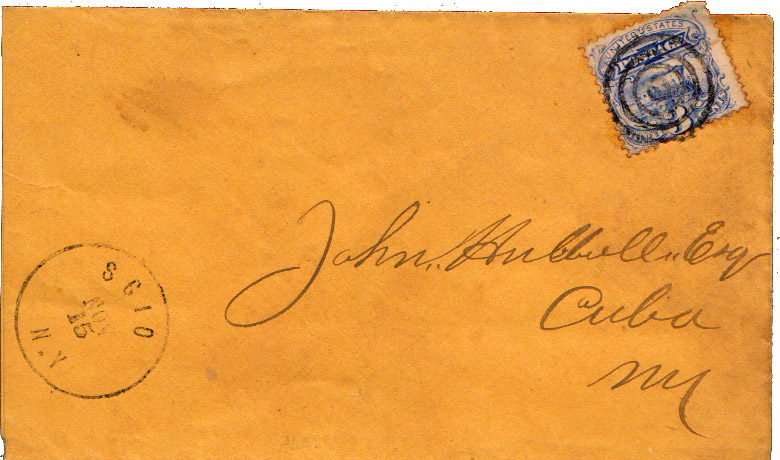 UNITED STATES
POSTAGE
3
SCIO
NOV
15
N.Y.
John Hubbell Esq
Cuba
NY